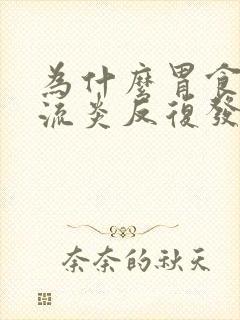 為什麼胃食
流炎反復發
奈奈的秋天